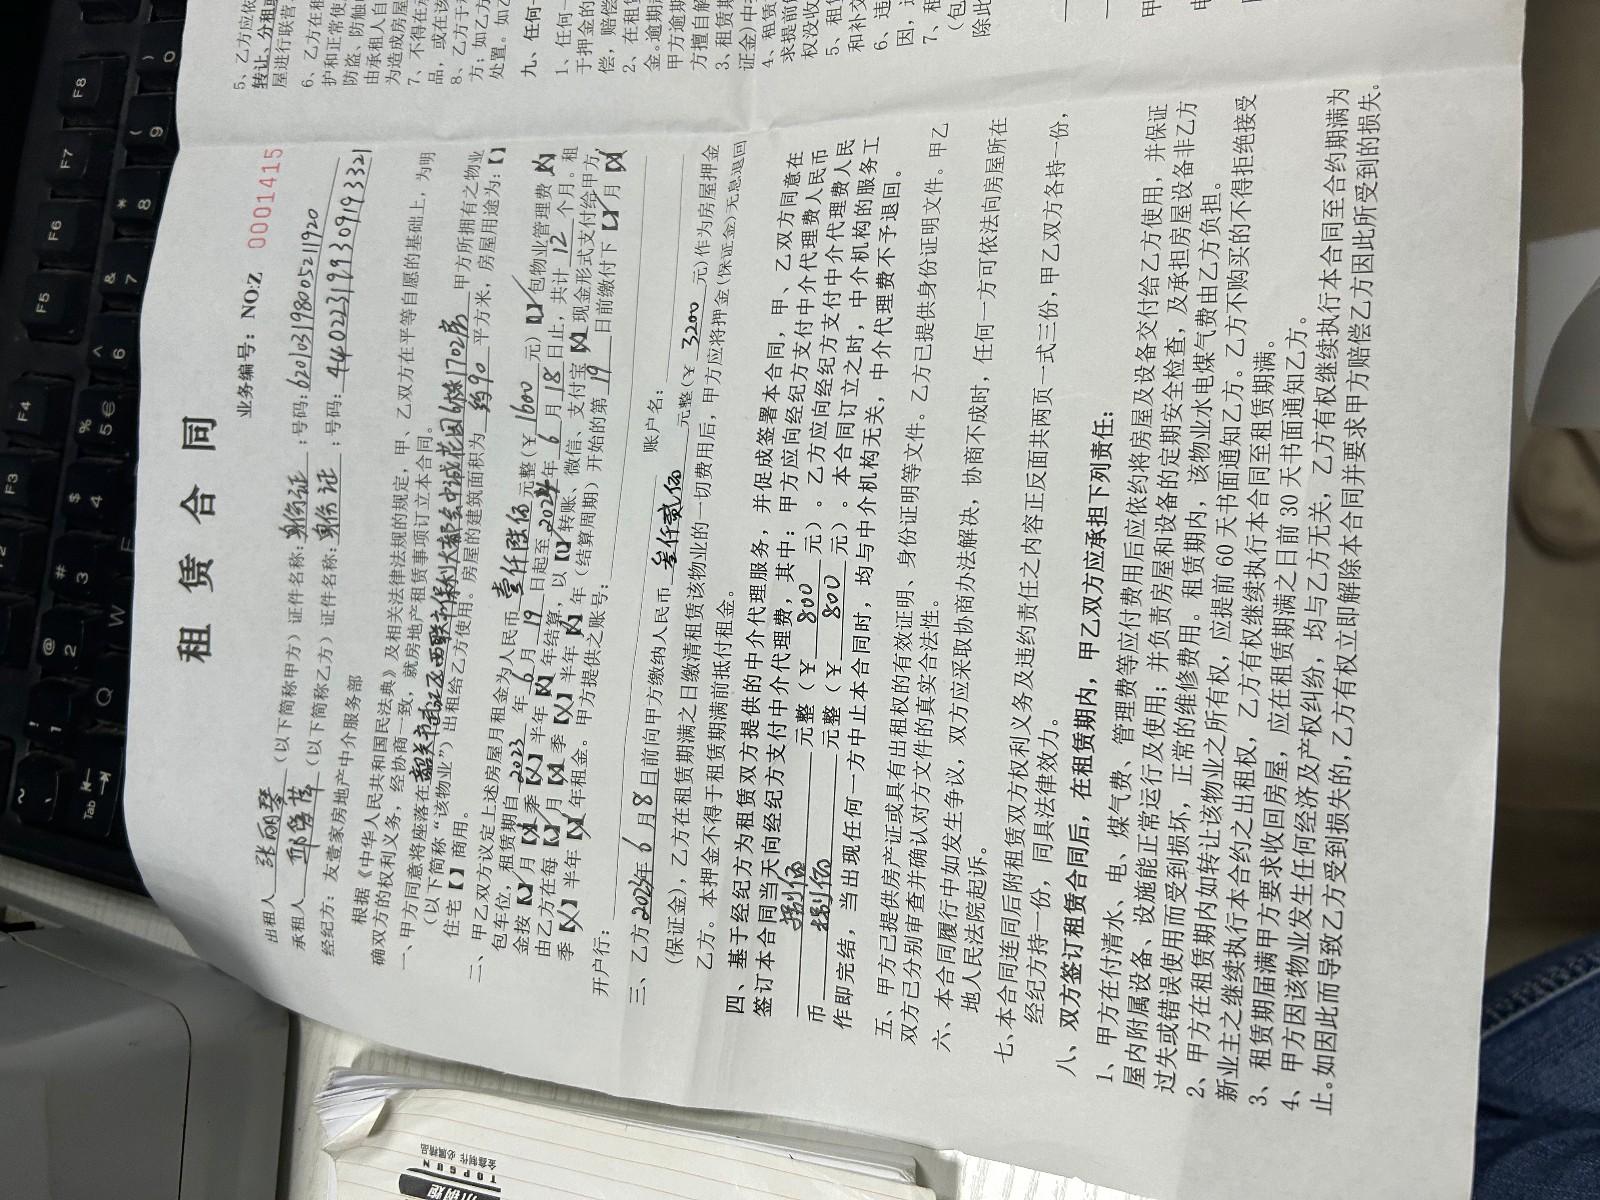 租赁合同
业务编号：NO:Z 0001415
出租人 张丽琴 （以下简称甲方）证件名称：身份证 ；号码：620103198005211920
承租人 邱 萍 （以下简称乙方）证件名称：身份证 ；号码：440223199309193321
经纪方：友壹家房地产中介服务部
根据《中华人民共和国民法典》及相关法律法规的规定，甲、乙双方在平等自愿的基础上，为明
确双方的权利义务，经协商一致，就房地产租赁事项订立本合同。
一、甲方同意将座落在 韶关市武江区西联镇保利大都会中诚花园6栋1702房 甲方所拥有之物业
（以下简称“该物业”）出租给乙方使用。房屋的建筑面积为 约90 平方米，房屋用途为：【】
住宅【】商用。
二、甲乙双方议定上述房屋月租金为人民币 壹仟陆佰 元整（￥ 1600 元）【√】包物业管理费【×】
包车位，租赁期自 2023 年 6 月 19 日起至 2024 年 6 月 18 日止，共计 12 个月。租
金按【√】月【×】季【×】半年【×】年结算，以【√】转账、微信、支付宝【×】现金形式支付给甲方，
由乙方在每【√】月【×】季【×】半年【×】年（结算周期）开始的第 19 日前缴付下【√】月【×】
季【×】半年【×】年租金。甲方提供之账号：
开户行： 账户名：
三、乙方 2023年 6 月 8 日前向甲方缴纳人民币 叁仟贰佰 元整（￥ 3200 元）作为房屋押金
（保证金），乙方在租赁期满之日缴清租赁该物业的一切费用后，甲方应将押金（保证金）无息退回
乙方。本押金不得于租赁期满前抵付租金。
四、基于经纪方为租赁双方提供的中介代理服务，并促成签署本合同，甲、乙双方同意在
签订本合同当天向经纪方支付中介代理费，其中：甲方应向经纪方支付中介代理费人民币
捌佰 元整（￥ 800 元）。乙方应向经纪方支付中介代理费人民
币 捌佰 元整（￥ 800 元）。本合同订立之时，中介机构的服务工
作即完结，当出现任何一方中止本合同时，均与中介机构无关，中介代理费不予退回。
五、甲方已提供房产证或具有出租权的有效证明、身份证明等文件。乙方已提供身份证明文件。甲乙
双方已分别审查并确认对方文件的真实合法性。
六、本合同履行中如发生争议，双方应采取协商办法解决，协商不成时，任何一方可依法向房屋所在
地人民法院起诉。
七、本合同连同后附租赁双方权利义务及违约责任之内容正反面共两页一式三份，甲乙双方各持一份，
经纪方持一份，同具法律效力。
八、双方签订租赁合同后，在租赁期内，甲乙双方应承担下列责任：
1、甲方在付清水、电、煤气费、管理费等应付费用后应依约将房屋及设备交付给乙方使用，并保证
屋内附属设备、设施能正常运行及使用；并负责房屋和设备的定期安全检查，及承担房屋设备非乙方
过失或错误使用而受到损坏，正常的维修费用。租赁期内，该物业水电煤气费由乙方负担。
2、甲方在租赁期内如转让该物业之所有权，应提前 60 天书面通知乙方。乙方不购买的不得拒绝接受
新业主之继续执行本合约之出租权，乙方有权继续执行本合同至租赁期满。
3、租赁期届满甲方要求收回房屋，应在租赁期满之日前 30 天书面通知乙方。
4、甲方因该物业发生任何经济及产权纠纷，均与乙方无关，乙方有权继续执行本合同至合约期满为
止。如因此而导致乙方受到损失的，乙方有权立即解除本合同并要求甲方赔偿乙方因此所受到的损失。
5、乙方应依
转让、分租或
屋进行联营、
6、乙方在租
护和正常使
防盗、防触电
由承租人自
为造成房屋
7、不得在承
品，或在该
8、乙方于
方；如乙方
处置。如乙
九、任何一
1、任何一
于押金的
偿，赔偿
2、在租赁
金。逾期
甲方逾期
方擅自解
3、租赁期
证金)中
4、租赁
求提前
权没收
5、租赁
和补交
6、违
因，
7、租
（包
除此
甲
F3
F4
F5
F6
F7
F8
TOPGUN
金鑫制作 必属精品